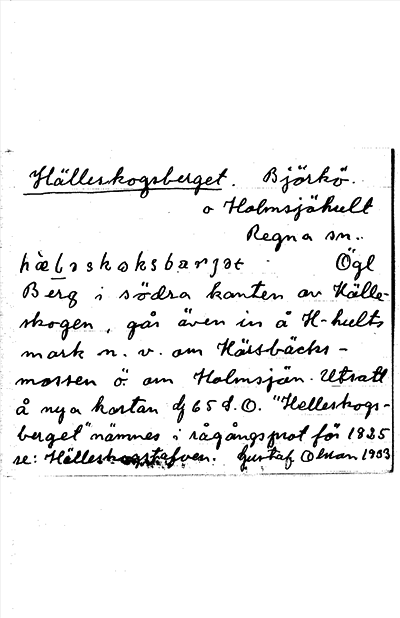 Hälleskogsberget. Björkö.
o Holmsjöhult
Regna sn.
Ögl
Berg i södra kanten av Hälle-
skogen, går även in å H-hults
mark n. v. om Kärsbäcks-
mossen ö. om Holmsjön. Utsatt
å nya kartan df 65 d. O. "Helleskogs-
berget" nämnes i rågångsprot för 1825
se: Hälleskogstafven. Gustaf Olsson 1903